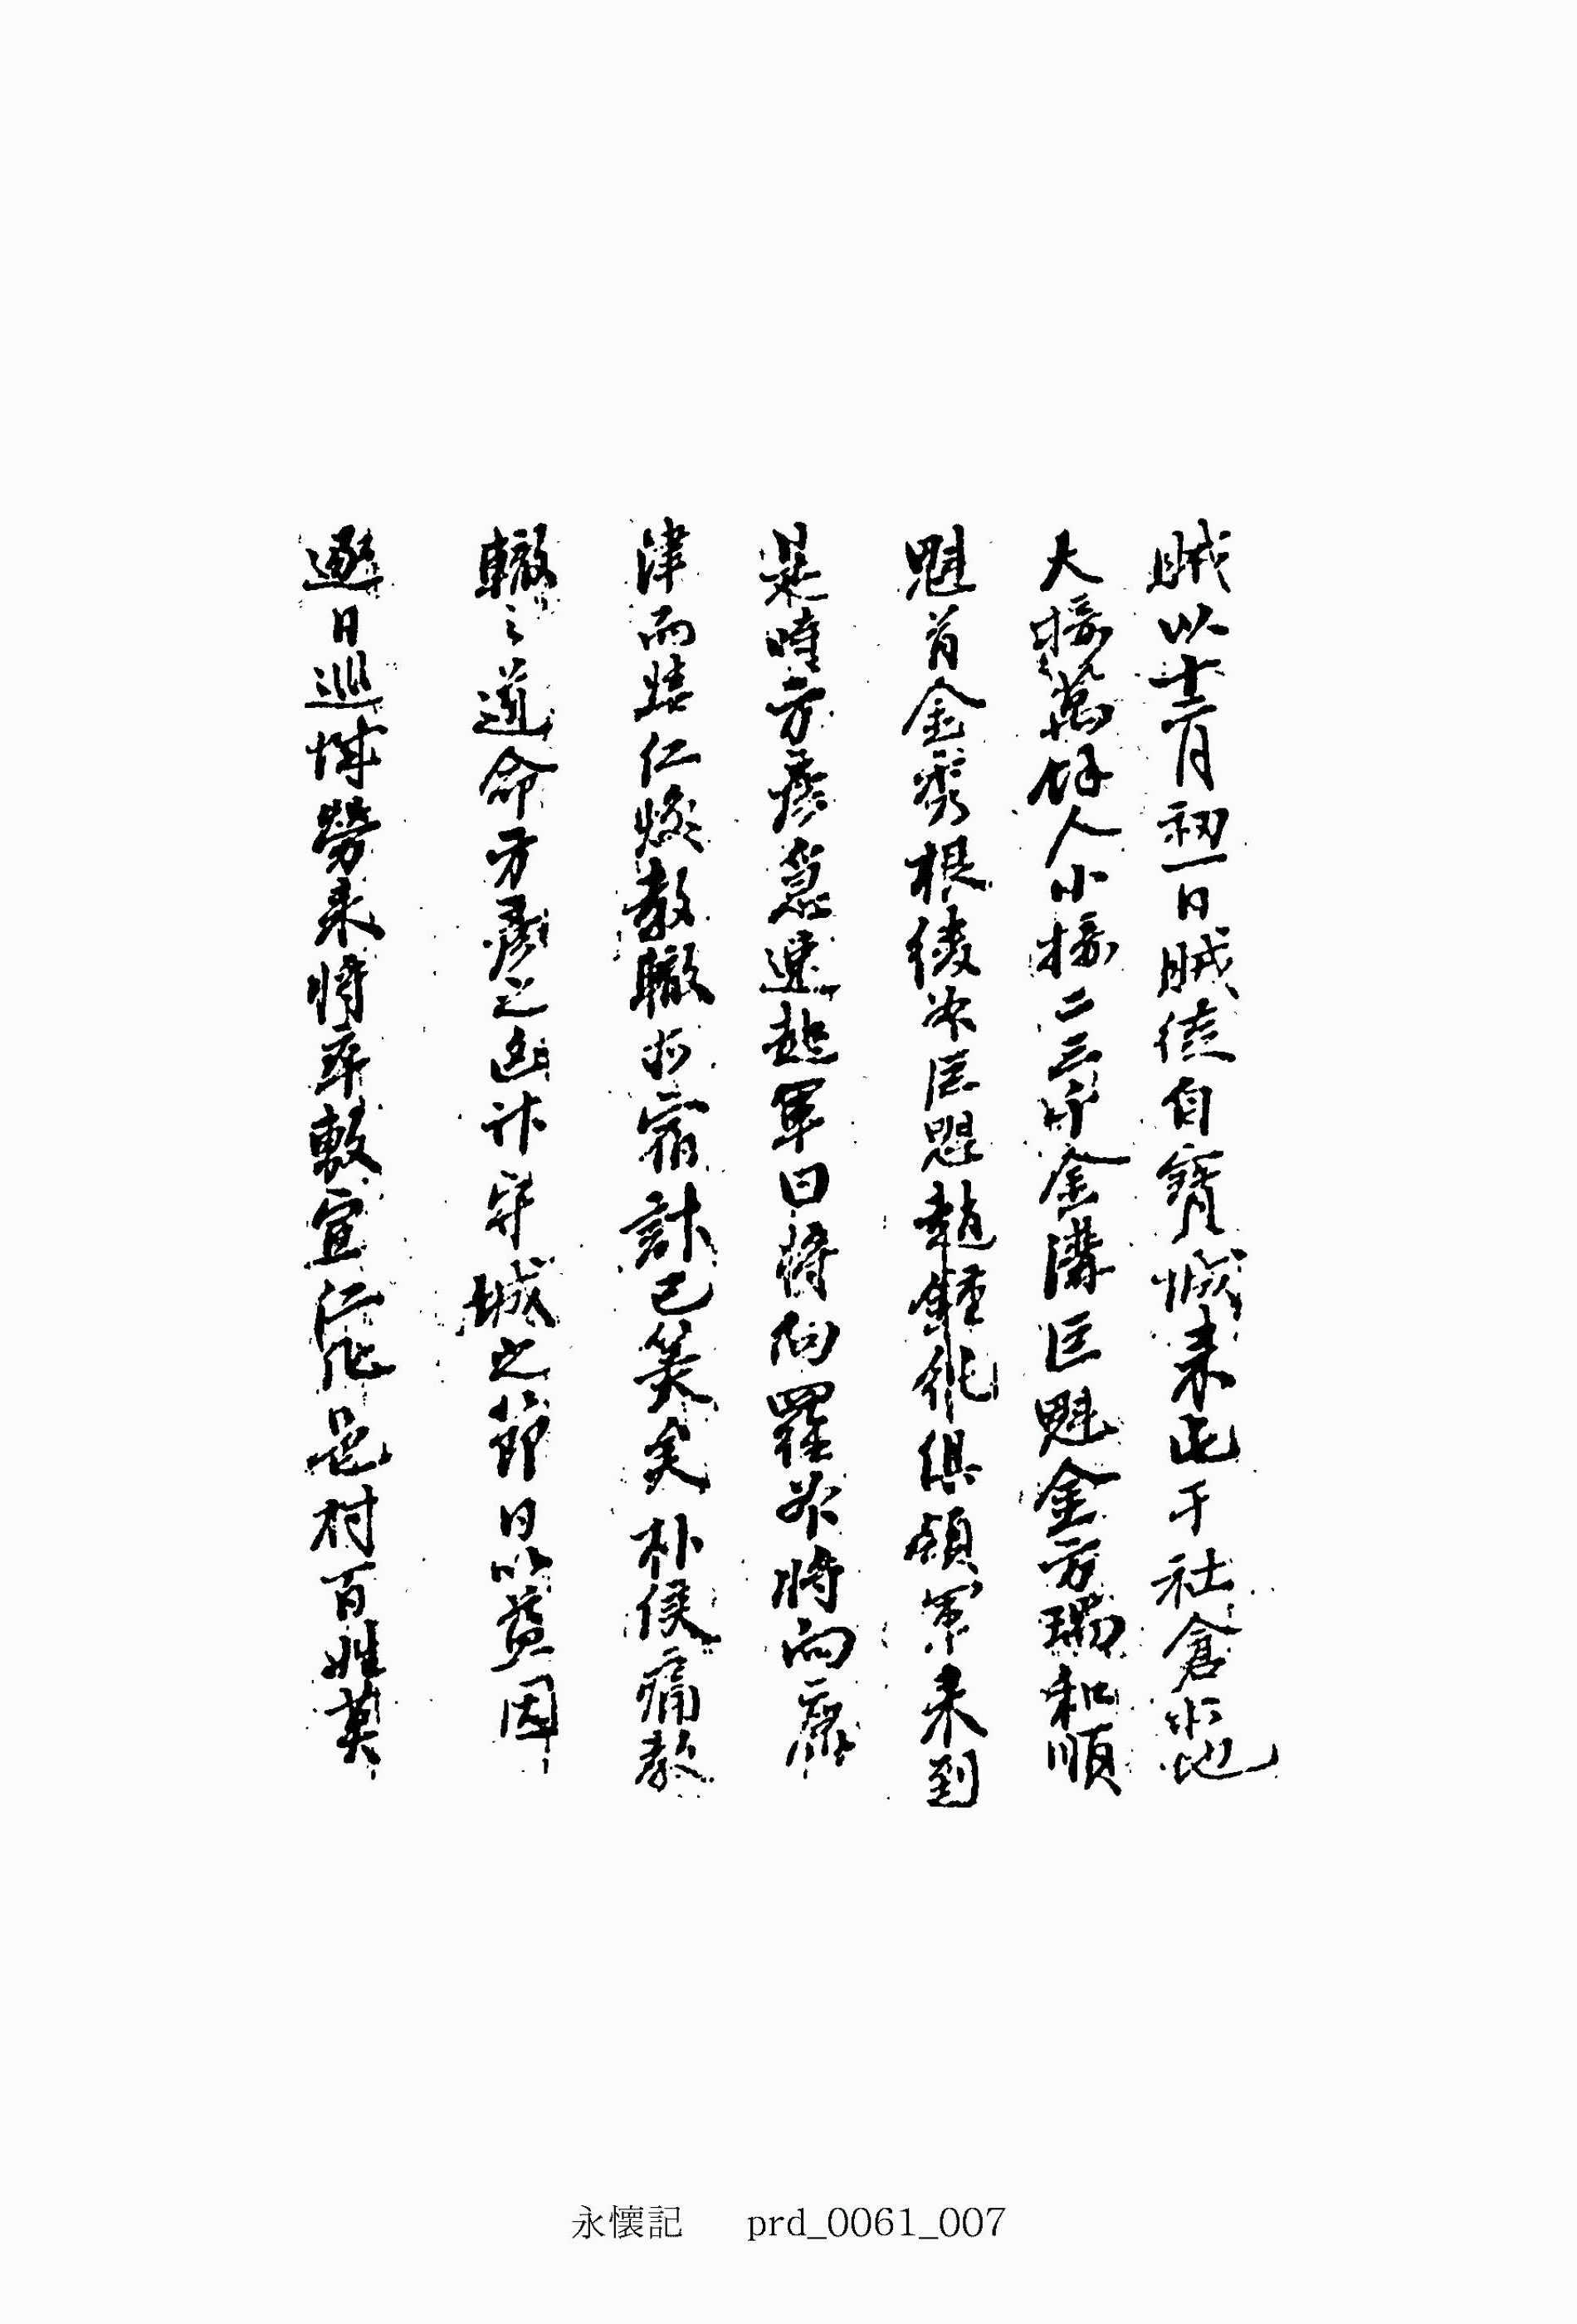 賊以十二月初一日賊徒自寶城來屯于社倉等地
大接萬餘人小接二三千金溝巨魁金方瑞和順
魁首金秀根綾州巨魁趙鍾純俱領軍來到
是時方彥急速起軍曰將向羅州將向康
津而焚仁燒教轍所宿計已算矣朴侯痛教
轍之道命方彥之凶計守城之節日以益固
逐日巡城勞來將卒敷宣仁化邑村百姓莫
永懷記 prd_0061_007